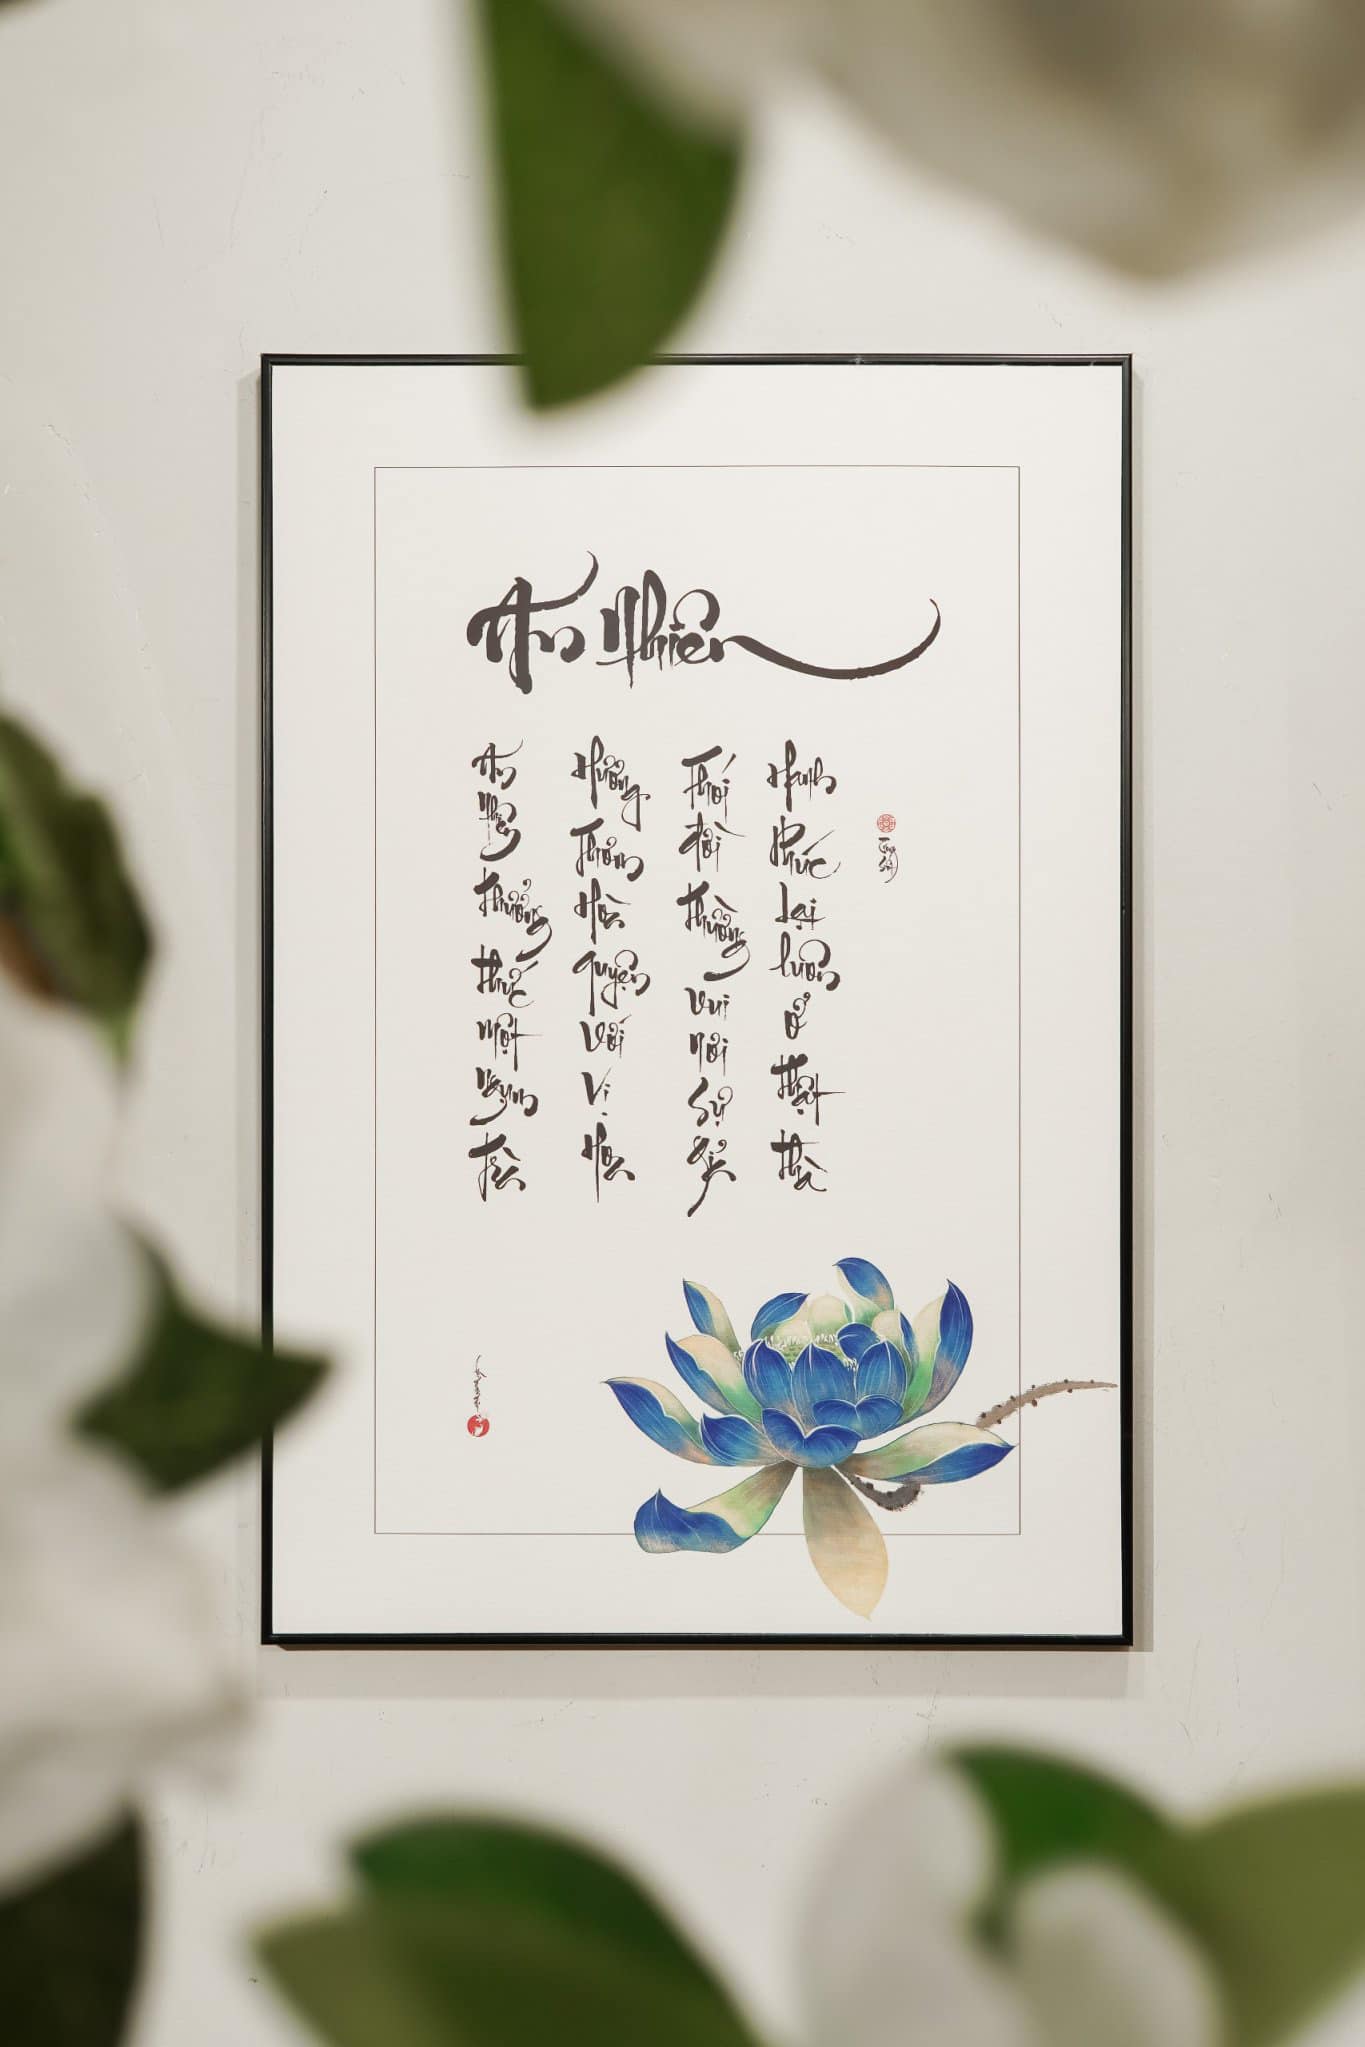 An Nhiên
An Nhiên Thưởng thức một Ngụm trà
Hương Thơm Hòa quyện với vị Hoa
Thói đời thường vui nơi sự
Hạnh phúc lại luôn ở thật thà